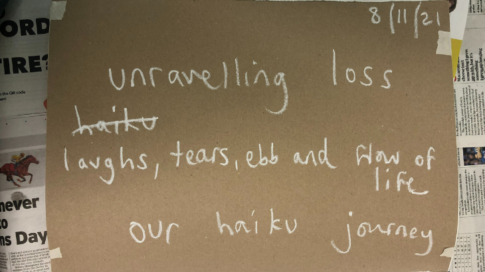 8/11/21
ORD
FIRE?
unravelling loss
haiku
laughs, tears, ebb and flow of
life
our haiku journey
never
to
ns Day